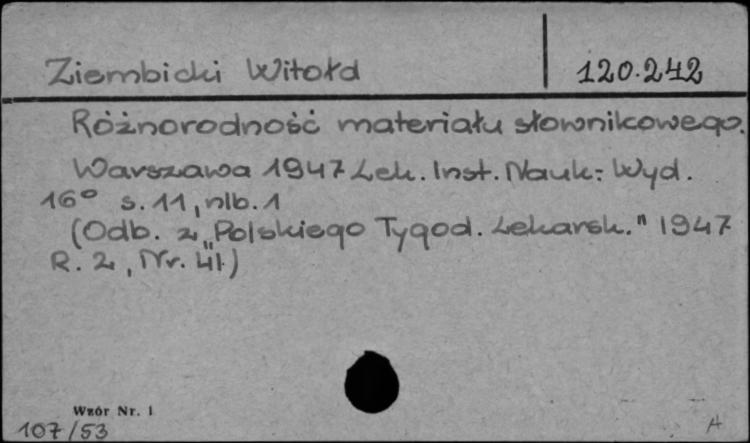 Ziembicki Witołd 120.242
Różnorodność materiału słownikowego.
Warszawa 1947 Lek. Inst. Nauk.-Wyd.
16° s. 11, nlb. 1
(Odb. z „Polskiego Tygod. Lekarsk." 1947
R. 2, Nr. 41)
Wzór Nr. 1
107/53 A